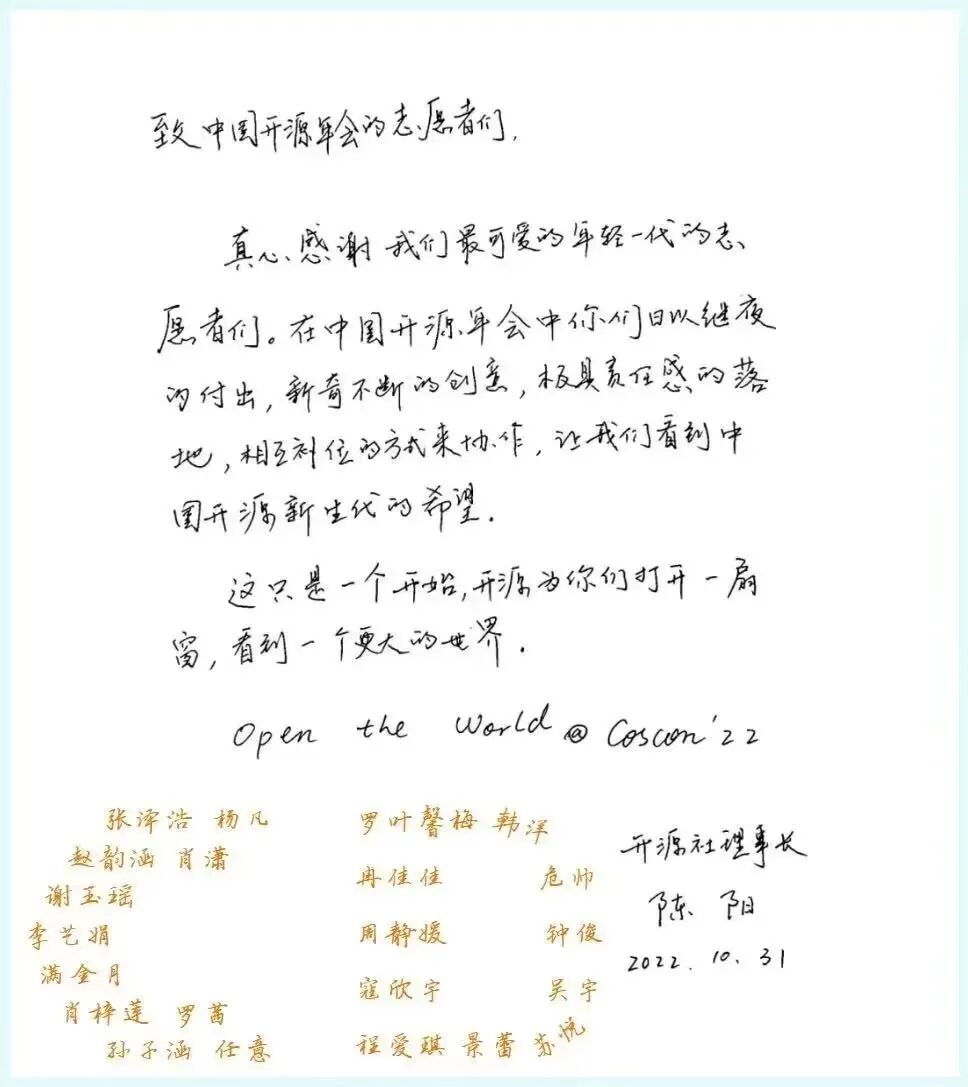 致中国开源年会的志愿者们,
真心感谢我们最可爱的年轻一代的志
愿者们。在中国开源年会中你们日以继夜
的付出,新奇不断的创意,极具责任感的落
地,相互补位的方式来协作,让我们看到中
国开源新生代的希望.
这只是一个开始,开源为你们打开一扇
窗,看到一个更大的世界.
Open the World @ Coscon'22
张泽浩 杨凡
赵韵涵 肖潇
谢玉瑶
李艺娟
满金月
肖梓莲 罗茜
孙子涵 任意
罗叶馨梅 韩洋
冉佳佳 危帅
周静媛 钟俊
寇欣宇 吴宇
程爱琪 景蕾 苏悦
开源社理事长
陈阳
2022.10.31